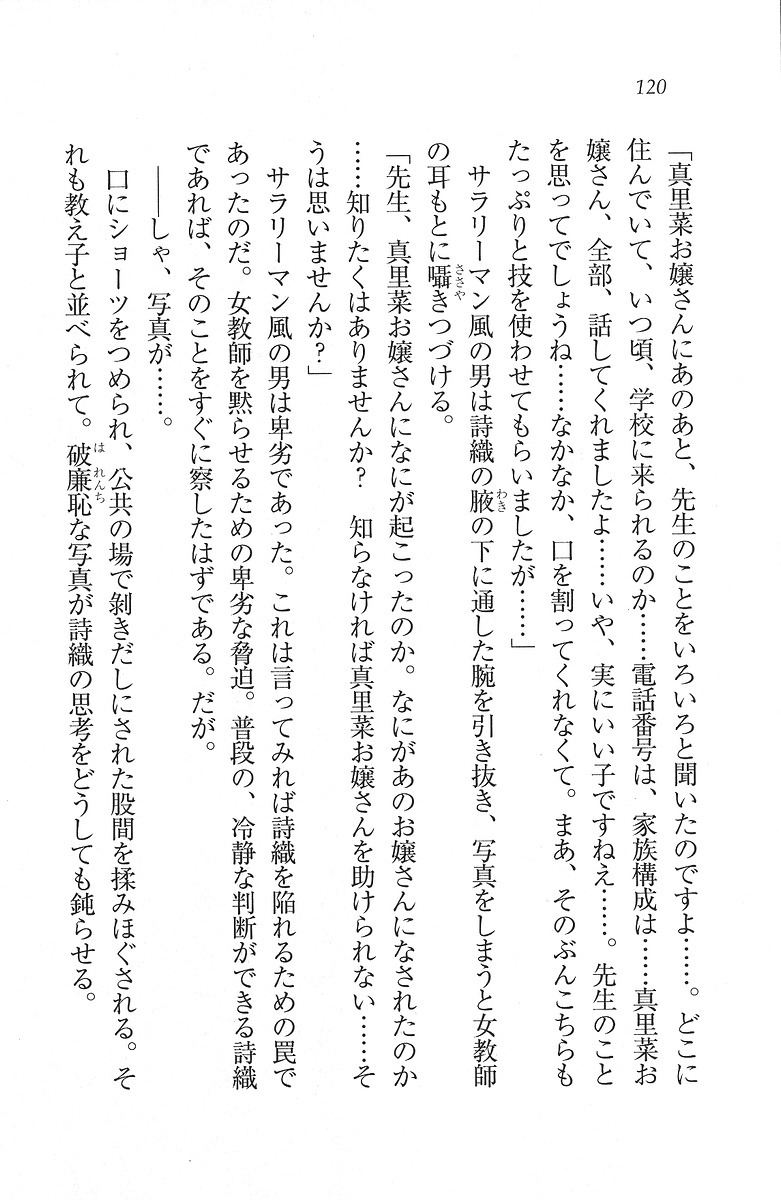 120
「真里菜お嬢さんにあのあと、先生のことをいろいろと聞いたのですよ……。どこに
住んでいて、いつ頃、学校に来られるのか……電話番号は、家族構成は……真里菜お
嬢さん、全部、話してくれましたよ……いや、実にいい子ですねえ……。先生のこと
を思ってでしょうね……なかなか、口を割ってくれなくて。まあ、そのぶんこちらも
たっぷりと技を使わせてもらいましたが……」
サラリーマン風の男は詩織の腋の下に通した腕を引き抜き、写真をしまうと女教師
の耳もとに囁きつづける。
「先生、真里菜お嬢さんになにが起こったのか。なにがあのお嬢さんになされたのか
……知りたくはありませんか？　知らなければ真里菜お嬢さんを助けられない……そ
うは思いませんか？」
サラリーマン風の男は卑劣であった。これは言ってみれば詩織を陥れるための罠で
あったのだ。女教師を黙らせるための卑劣な脅迫。普段の、冷静な判断ができる詩織
であれば、そのことをすぐに察したはずである。だが。
――しゃ、写真が……。
口にショーツをつめられ、公共の場で剥きだしにされた股間を揉みほぐされる。そ
れも教え子と並べられて。破廉恥な写真が詩織の思考をどうしても鈍らせる。